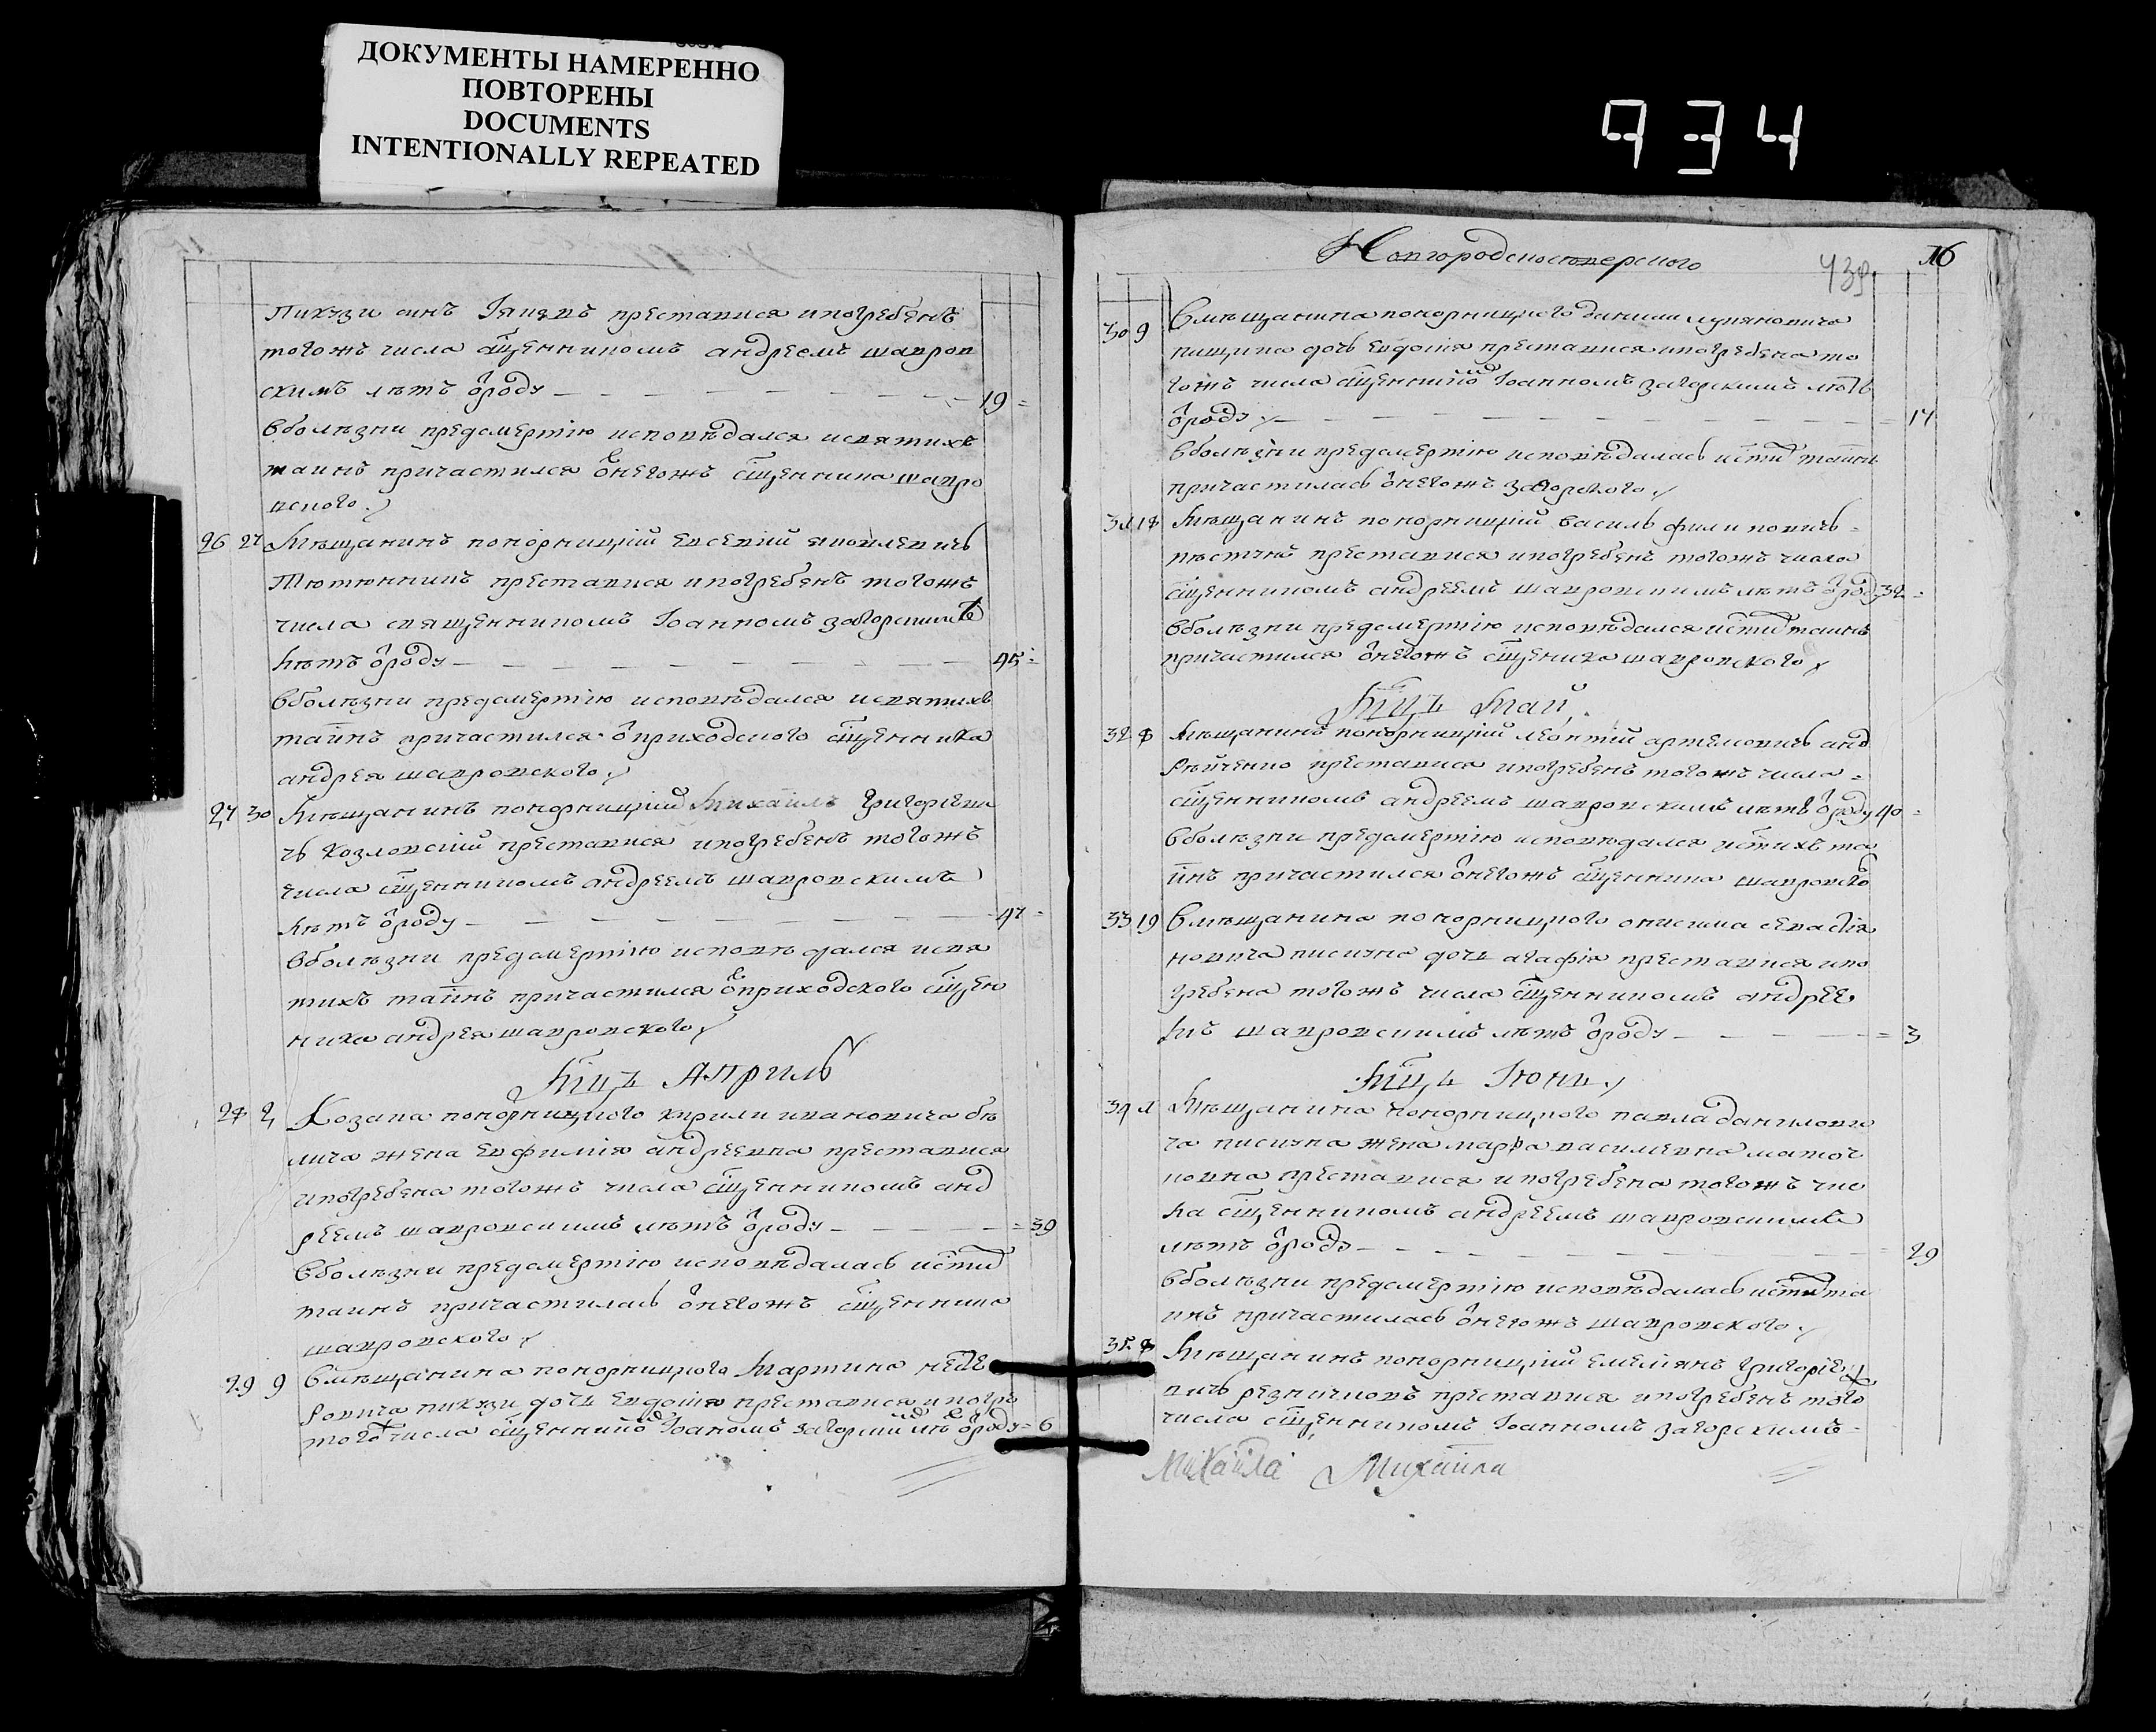 ДОКУМЕНТЫ НАМЕРЕННО
ПОВТОРЕНЫ
DOCUMENTS
INTENTIONALLY REPEATED
934
пикузи синъ преставися ипогребенъ
тогожъ числа сщенникомъ андреемъ шавров
скимъ лѣтъ ѿроду 19
вболѣзни предсмертію исповѣдался исвятихъ
таинъ причастился ѿнегожъ сщенника шавро
вского
26 27 Мѣщанинъ понорницкій евсевій яковлевичъ
Тютюнникъ преставися ипогребенъ тогожъ
числа священникомъ Іоанномъ загорскимъ
лѣтъ ѿроду 45
вболѣзни предсмертію исповѣдался исвятихъ
таинъ причастился ѿприходского сщенника
андрея шавровского
27 30 Мѣщанинъ понорницкій Михаилъ григоріеви
чъ козловскій преставися ипогребенъ тогожъ
числа сщенникомъ андреемъ шавровскимъ
лѣтъ ѿроду 47
вболѣзни предсмертію исповѣдался исвя
тихъ таинъ причастился ѿприходского сщен
ника андрея шавровского
Мцъ Априль
28 2 Козака понорницкого кирили ивановича бѣ
лича жена евфимія андреевна преставися
ипогребена тогожъ числа сщенникомъ анд
реемъ шавровскимъ лѣтъ ѿроду 39
вболѣзни предсмертію исповѣдалась истих
таинъ причастилась ѿнегожъ сщенника
шавровского
29 9 Вмѣщанина понорницкого Мартина неде
ровича пикузи дочь евдокія преставися ипогре
того числа сщенником Іоаномъ загорским лѣ ѿроду 6
Новгородскосѣверского
439
16
30 9 Вмѣщанина понорницкого данили лукяновича
дочь евдокія преставися ипогребена то
гожъ числа сщенником Іоанномъ загорскимъ лѣтъ
ѿроду 17
вболѣзни предсмертію исповѣдалась истих таинъ
причастилась ѿнегожъ загорского
31 18 Мѣщанинъ понорницкій василь филиповичъ
преставися ипогребенъ тогожъ числа
сщенникомъ андреемъ шавровскимъ лѣтъ ѿроду 32
вболѣзни предсмертію исповѣдался истих таинъ
причастился ѿнегожъ сщеника шавровского
Мцъ Май
32 8 Мѣщанинъ понорницкій леонтій артемовичъ анд
рѣйченко преставися ипогребенъ тогожъ числа
сщенникомъ андреемъ шавровскимъ лѣтъ ѿроду 40
вболѣзни предсмертію исповѣдался истихъ та
инъ причастился ѿнегожъ сщенника шавровско
33 19 Вмѣщанина понорницкого онисима севастія
новича дочь агафія преставися ипо
гребена тогожъ числа сщенникомъ андрее
мъ шавровскимъ лѣтъ ѿроду 3
Мцъ Іюнь
34 1 Мѣщанина понорницкого павла данилови
ча жена марфа василевна
преставися ипогребена тогожъ чис
ла сщенникомъ андреемъ шавровскимъ
лѣтъ ѿроду 29
вболѣзни предсмертію исповѣдалась истих та
инъ причастилась ѿнегожъ шавровского
35 8 Мѣщанинъ понорницкій емеліянъ григоріе
вичъ преставися ипогребенъ того
числа сщенникомъ Іоанномъ загорскимъ
Михаила Михаила